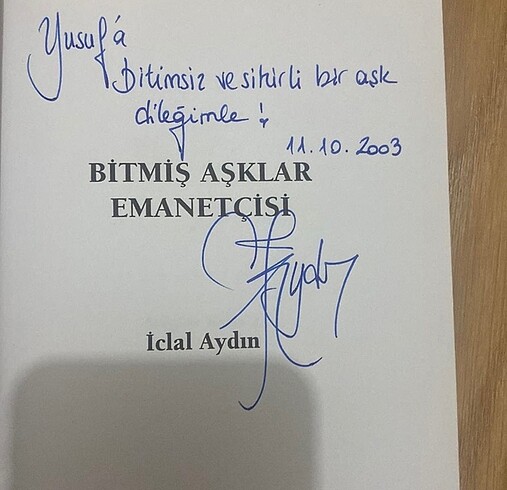 Yusuf'a
Bitimsiz ve sihirli bir aşk
dileğimle!
11.10.2003
BİTMİŞ AŞKLAR
EMANETÇİSİ
İclal Aydın